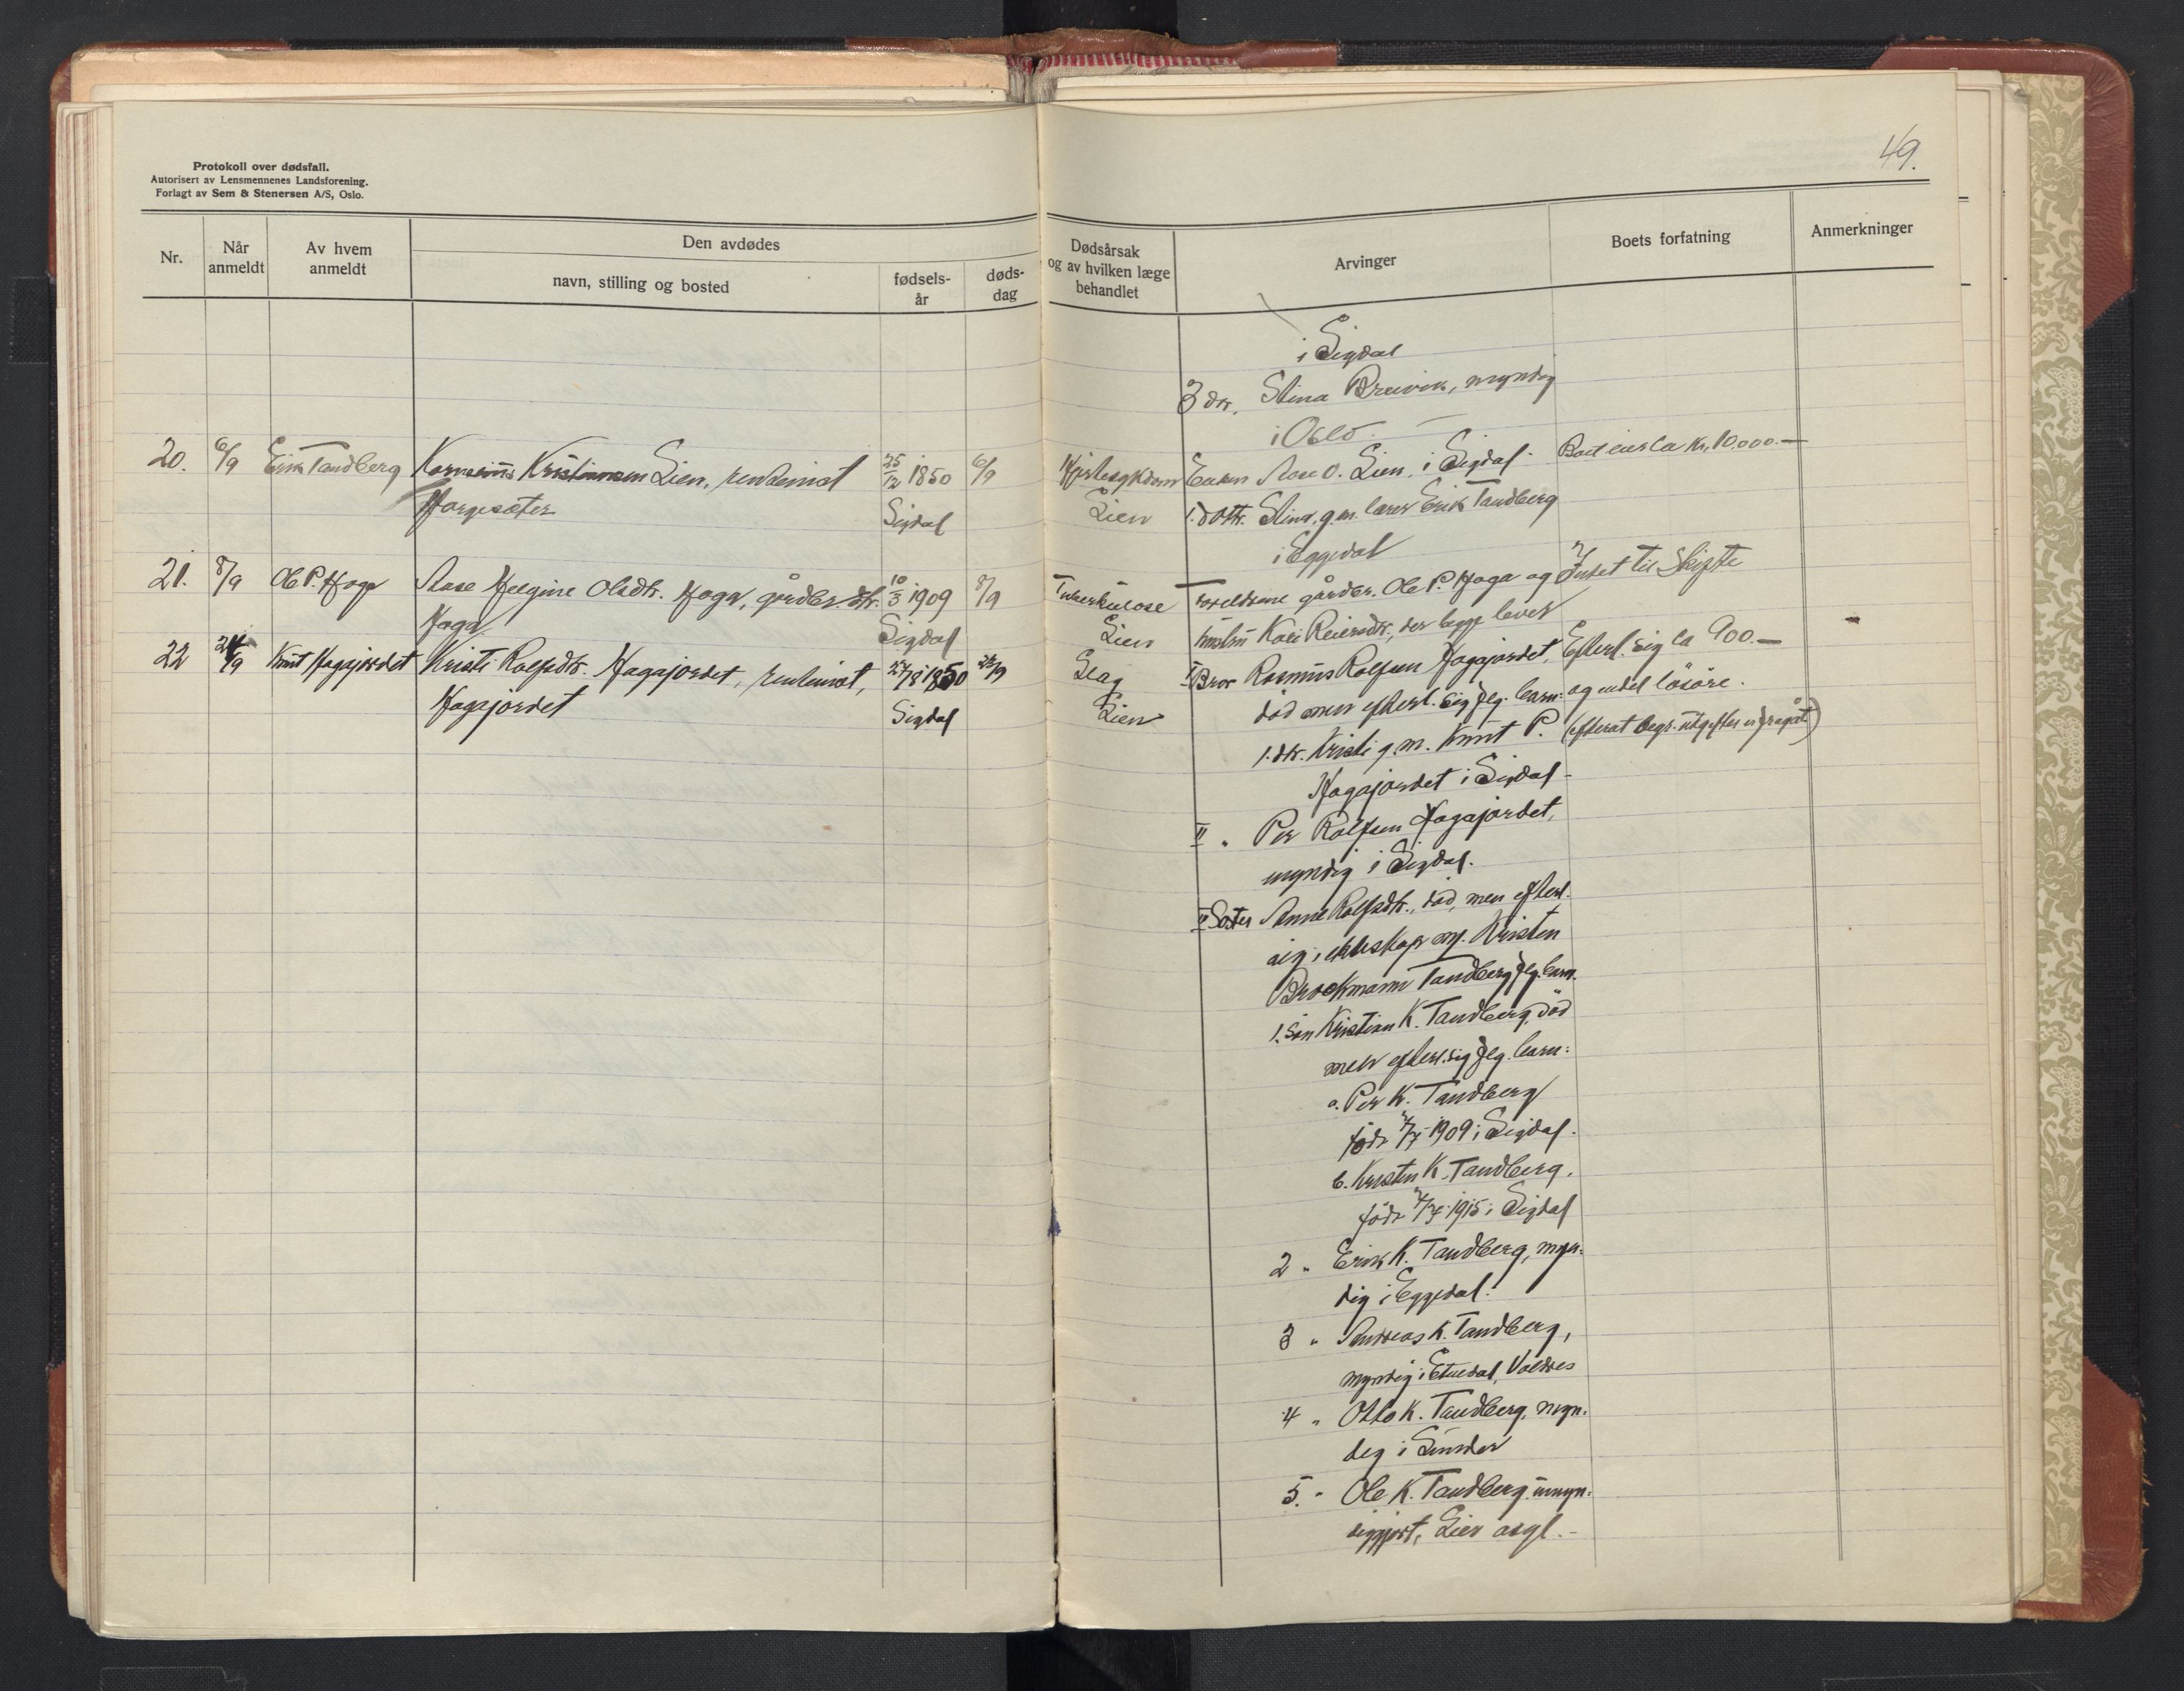 Protokoll over dødsfall.
Autorisert av Lensmennenes Landsforening.
Forlagt av Sem & Stenersen A/S, Oslo.
49.
Nr.
Når anmeldt
Av hvem anmeldt
Den avdødes
navn, stilling og bosted
fødsels-år
døds-dag
Dødsårsak og av hvilken læge behandlet
Arvinger
Boets forfatning
Anmerkninger
i Sigdal
3 dtr. Stina Breivik, myndig
i Oslo.
20. 6/9 Erik Tandberg Kornelius Kristiansen Lien, rentenist 25/12 1850 6/9 Hjertesykdom Enken Aase O. Lien i Sigdal. Boet eier ca kr. 10.000.—
Horgesæter Sigdal Lien 1. dottr. Stina, g.m. lærer Erik Tandberg
i Eggedal
21. 8/9 Ole P. Haga Aase Helgine Olsdtr. Haga, gårdbr. dtr. 10/3 1909 8/9 Tuberkulose Foreldrene gårdbr. Ole P. Haga og Intet til Skifte
Haga Sigdal Lien hustru Kari Reiersdtr., der begge lever
22 24/9 Knut Hagajordet Kristi Rolfsdtr. Hagajordet, rentenist, 1850 Slag I Bror Rasmus Rolfsen Hagajordet, Efterl. sig ca 900.—
Hagajordet Sigdal Lien død men efterl. sig flg. barn: og endel løsøre.
1. dtr. Kristi g.m. Knut P. (efterat begr. utgifter er fragåt)
Hagajordet i Sigdal
II " Per Rolfsen Hagajordet,
myndig i Sigdal.
Søster Anne Rolfsdtr., død, men efterl.
sig i ekteskap m. Kristen
Brockmann Tandberg flg. barn.
1. Søn Kristian K. Tandberg, død
men efterl. sig flg. barn:
a. Per K. Tandberg
født 1909 i Sigdal.
b. Kristen K. Tandberg,
født 1915 i Sigdal
2 " Erik K. Tandberg, myn-
dig i Eggedal.
3 " Andreas K. Tandberg,
myndig i Etnedal, Valdres
4 " Otto K. Tandberg, myn-
dig i
5. " Ole K. Tandberg umyn-
diggjort, Lier asyl.